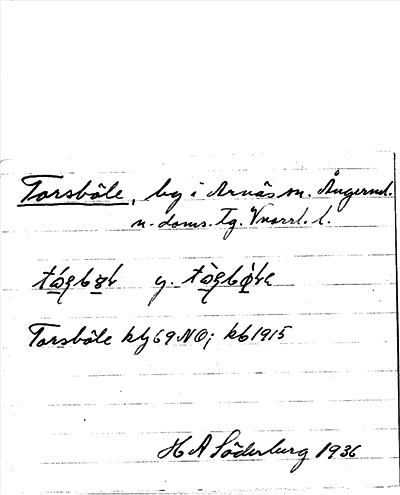 Torsböle, by i Arnäs sn. Ångerml.
n. doms. Tg. Vnorrl. l.
y.
Torsböle kbl 69 NO; kb 1915
H A Söderburg 1936